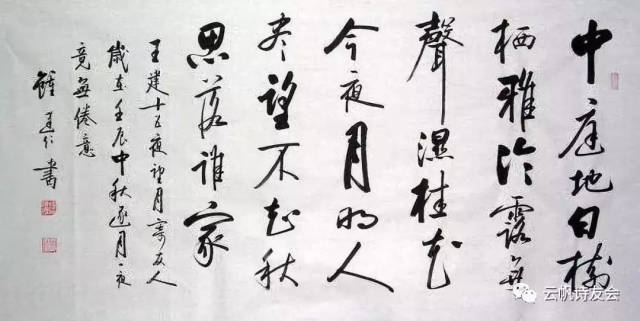 中庭地白樹
栖雅冷露無
聲濕桂花
今夜月明人
尽望不知秋
思落谁家
王建十五夜望月寄友人
歲在壬辰中秋逐月一夜
竟無倦意
鍾 仁書
云帆诗友会